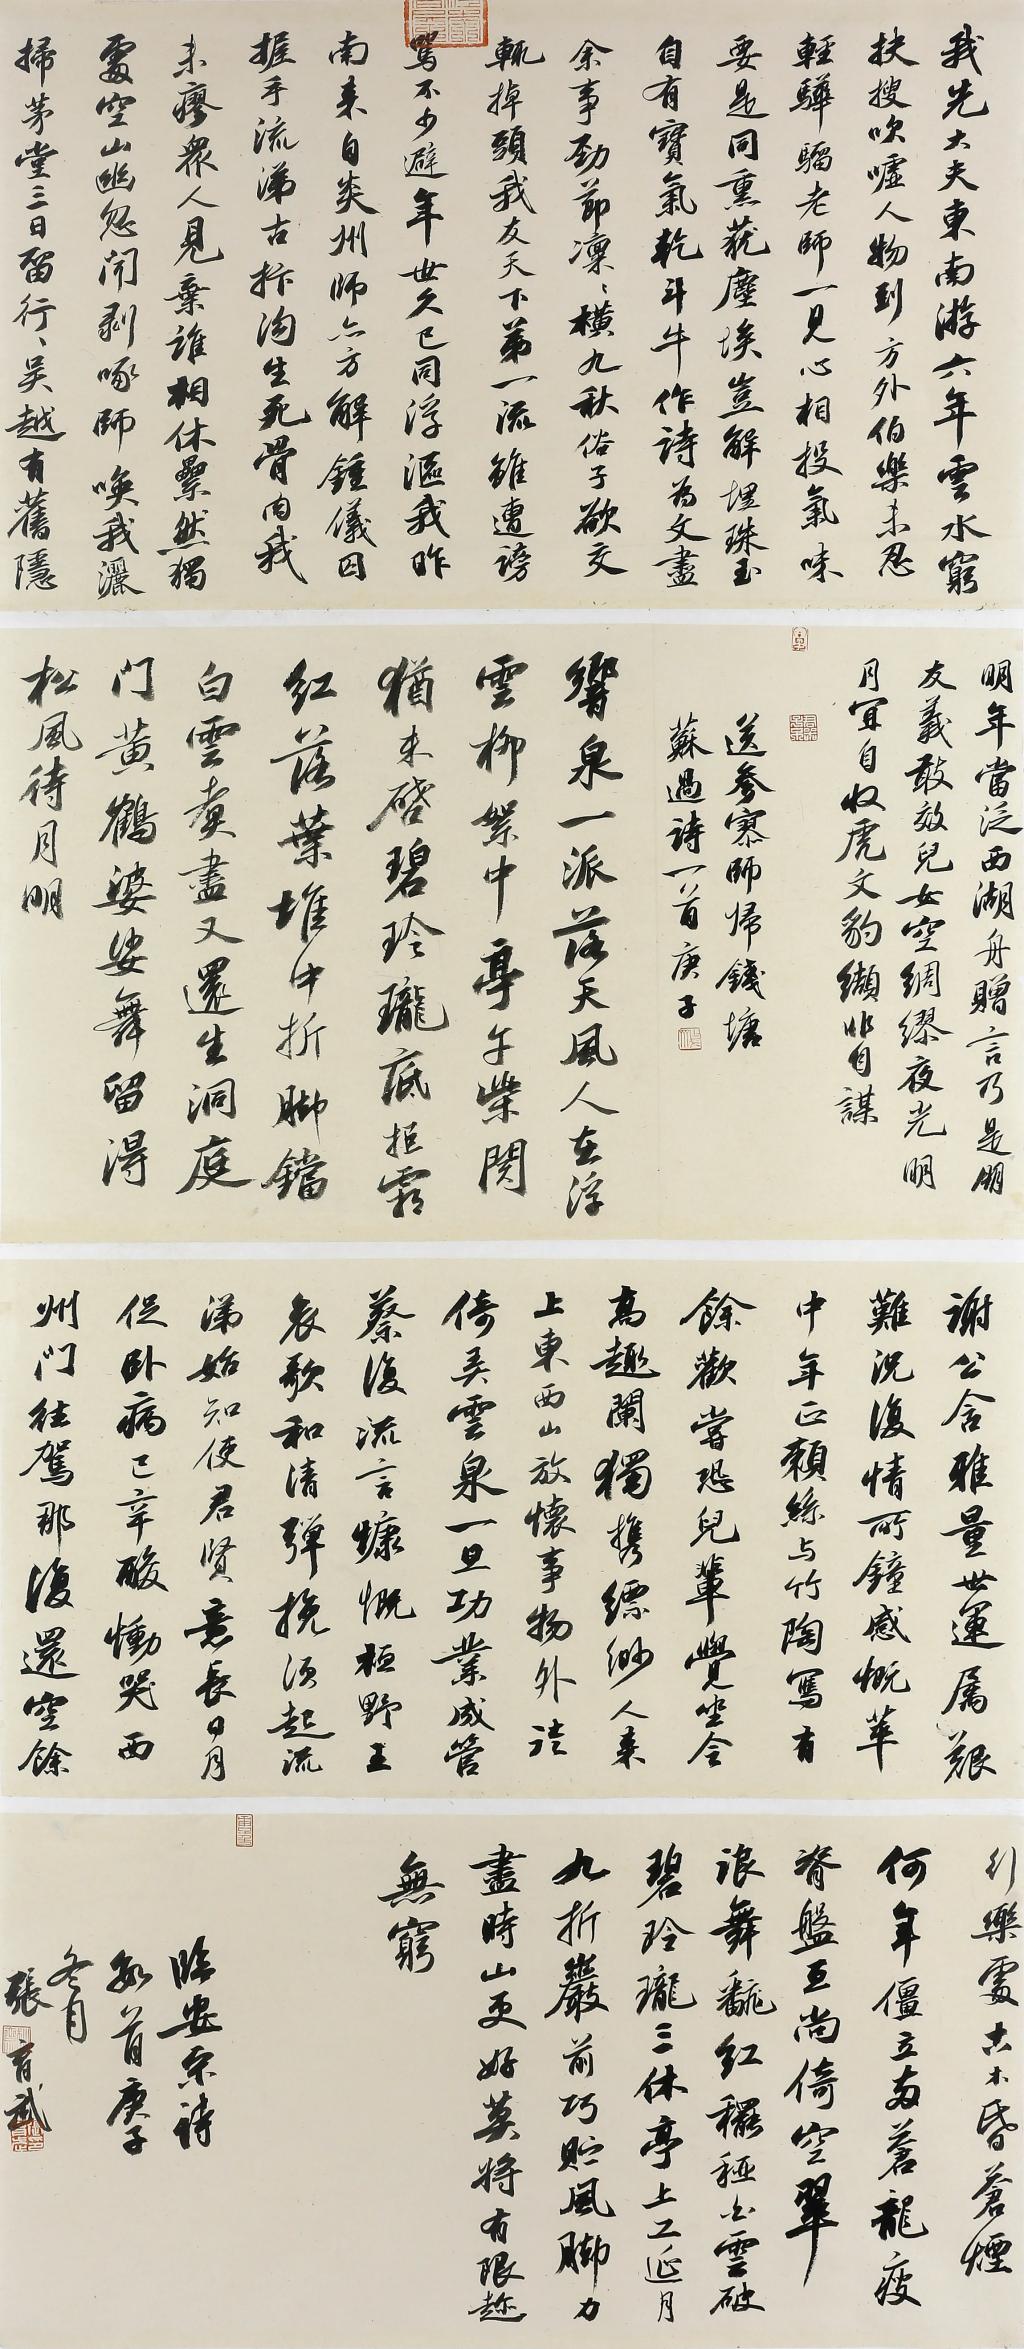 我先大夫東南游六年雲水窮
扶搜吹噓人物到方外伯樂未忍
輕驊騮老師一見心相投氣味
要是同熏蕕塵埃豈解埋珠玉
自有寶氣乾斗牛作詩為文盡
余事勁節凜、橫九秋俗子欲交
輒掉頭我友天下第一流雖遭謗
罵不少避年世久已同浮漚我昨
南來自炎州師亦方解鍾儀囚
握手流涕古
生死骨肉我
未瘳眾人見棄誰相休纍然獨
處空山幽忽聞剝啄師喚我灑
掃茅堂三日留行、吳越有舊隱
明年當泛西湖舟贈言乃是朋
友義敢效兒女空綢繆夜光明
月宜自收虎文豹纈非自謀
送參寥師帰錢塘
蘇過詩一首庚子
響泉一派落天風人在浮
雲柳絮中亭午柴関
猶未啓碧玲瓏底拒霜
紅落葉堆中折脚鐺
白雲煮盡又還生洞庭
門黃鶴婆娑舞留得
松風待月明
謝公含雅量世運屬艱
難況復情所鐘感慨萃
中年正賴絲与竹陶寫有
餘歡嘗恐兒輩覺坐令
高趣闌獨携縹緲人來
上東西山放懷事物外徙
倚弄雲泉一旦功業成管
蔡復流言慷慨桓野王
哀歌和清彈挽須起流
涕始知使君賢意長日月
促卧病已辛酸慟哭西
州門往駕那復還空餘
行樂處古木昏蒼煙
何年僵立兩蒼龍瘦
脊盤亘尚倚空翠
浪舞翻紅穤稏白雲破
碧玲瓏三休亭上工延月
九折巖前巧貯風脚力
盡時山更好莫將有限趂
無窮
臨安宗詩
數首庚子
冬月
張育誠